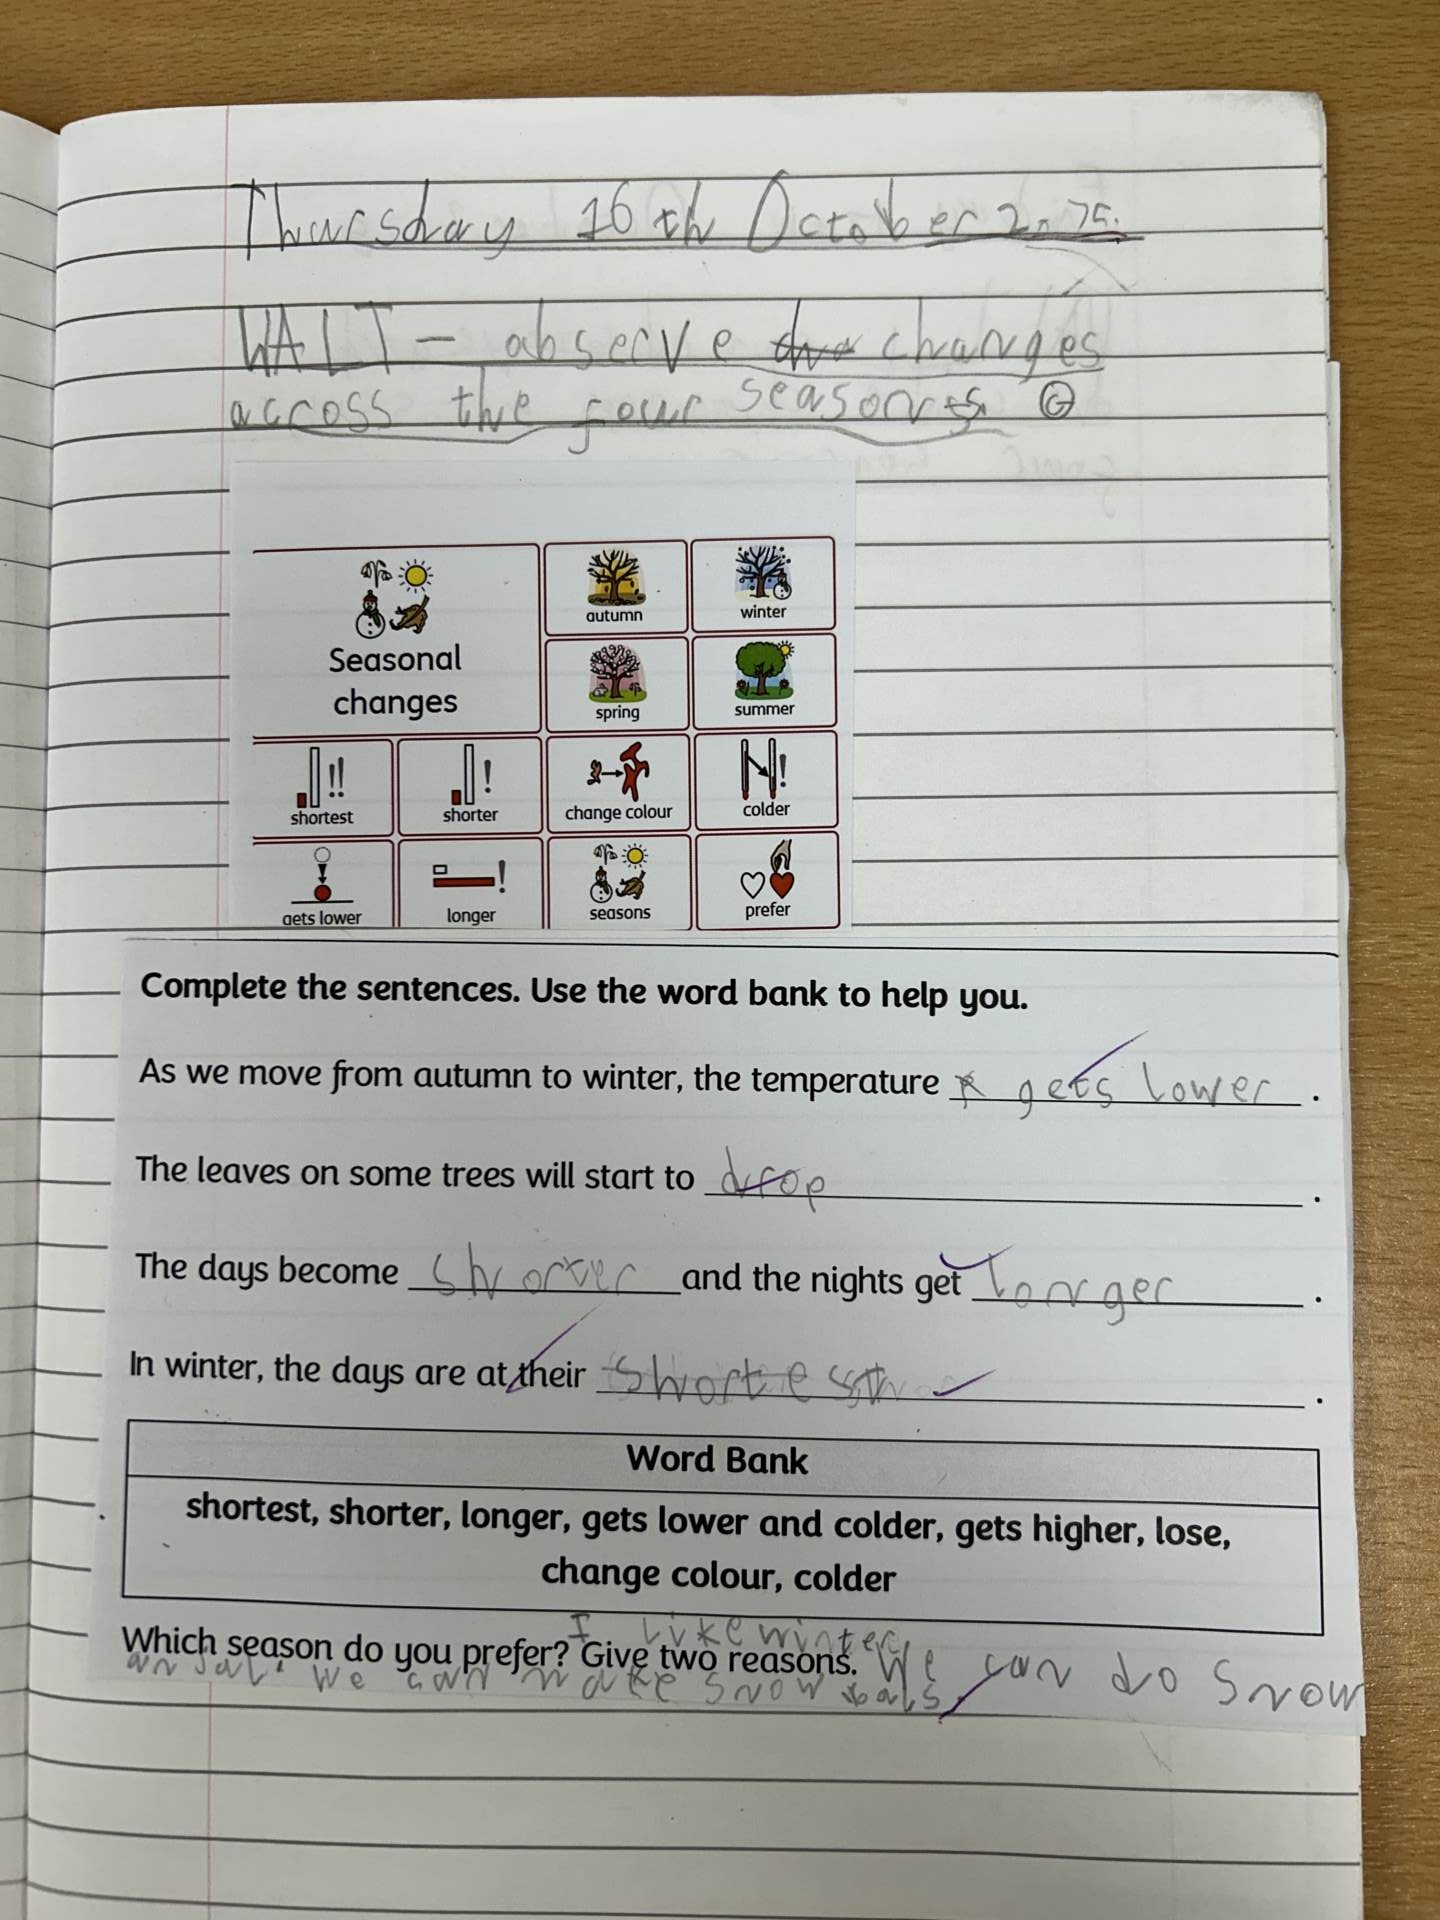 Thursday 16th October 2025.
WALT - observe changes
across the four seasons G
Seasonal
changes
autumn
winter
spring
summer
shortest
shorter
change colour
colder
gets lower
longer
seasons
prefer
Complete the sentences. Use the word bank to help you.
As we move from autumn to winter, the temperature gets lower.
The leaves on some trees will start to drop.
The days become shorter and the nights get longer.
In winter, the days are at their shortest.
Word Bank
shortest, shorter, longer, gets lower and colder, gets higher, lose,
change colour, colder
I like winter
Which season do you prefer? Give two reasons. We can do Snow
We can make snow bals.